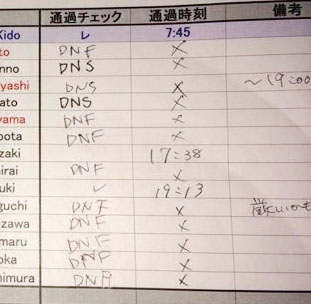 通過チェック 通過時刻 備考
Kido レ 7:45
to DNF ×
nno DNS ×
yashi DNS × ～19:00
ato DNS ×
yama DNF ×
bota DNF ×
zaki 17:38
irai DNF ×
uki レ 19:13
guchi DNF × 厳しいかも
zawa DNF ×
maru DNF ×
oka DNF ×
himura DNF ×